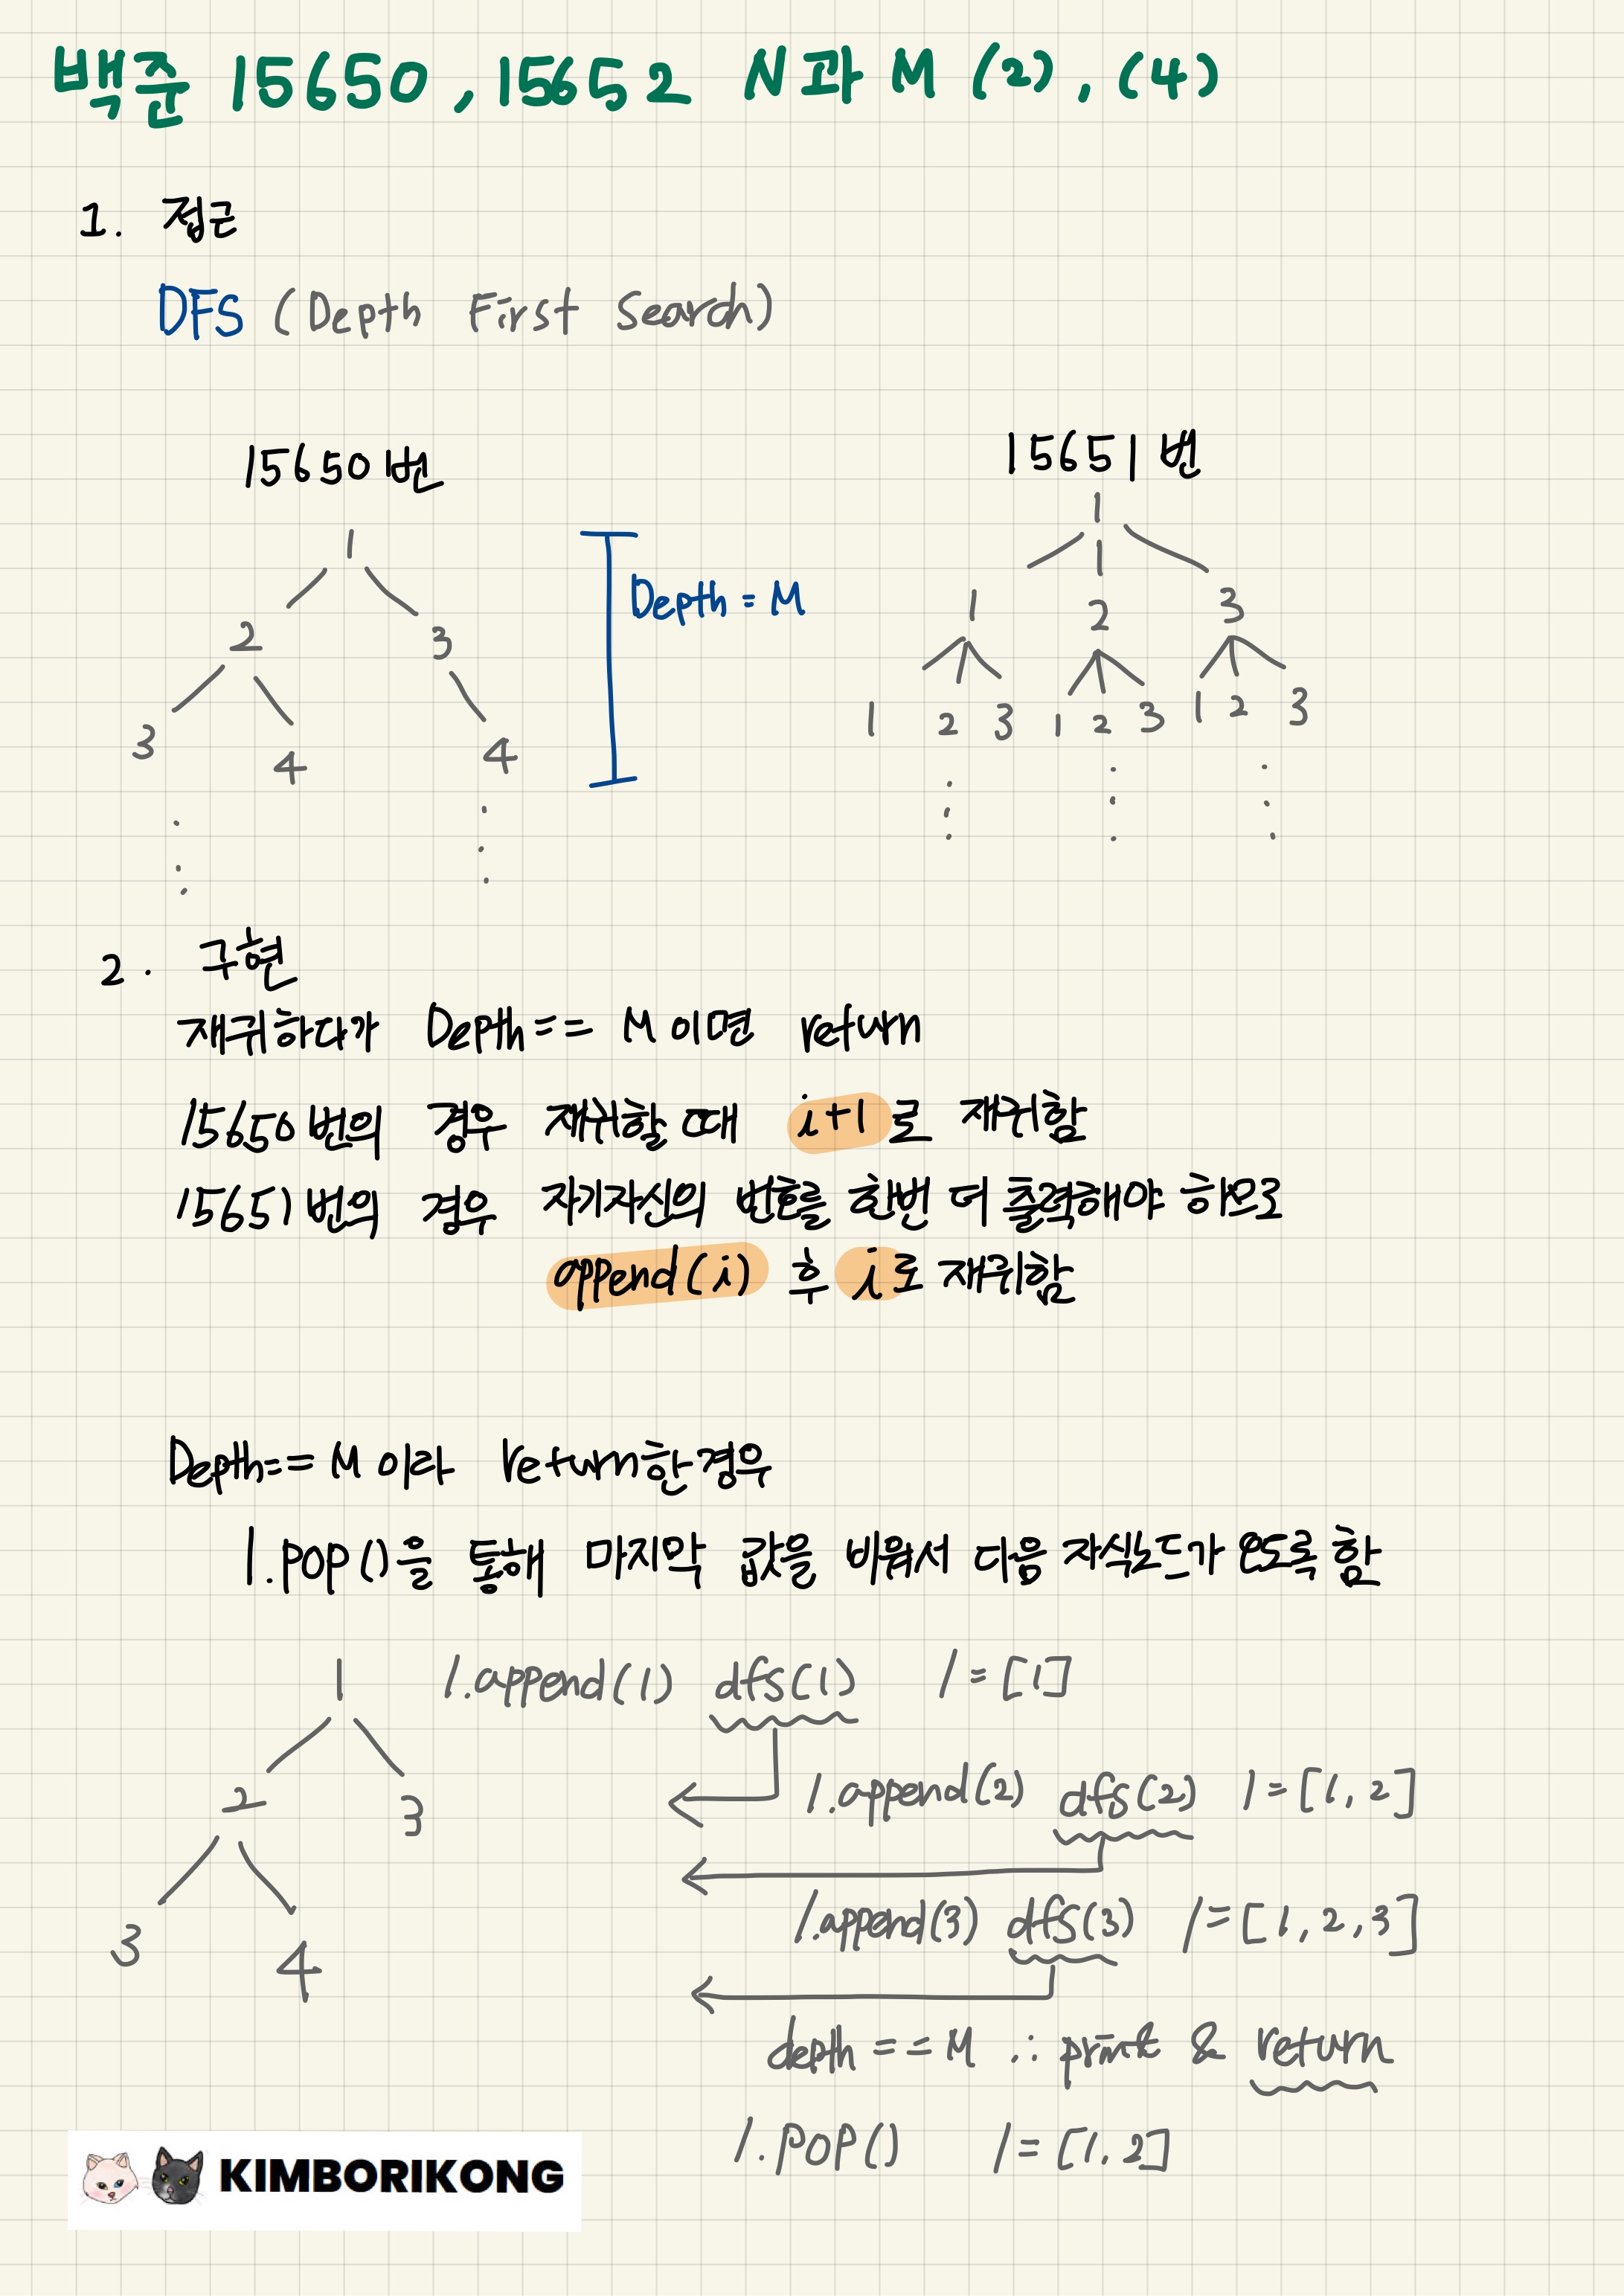 백준 15650, 15652 N과 M (2), (4)
1. 접근
DFS (Depth First Search)
15650번
15651번
1
2 3
3 4 4
Depth = M
1
1 2 3
1 2 3 1 2 3 1 2 3
2. 구현
재귀하다가 Depth == M 이면 return
15650번의 경우 재귀할 때 i+1로 재귀함
15651번의 경우 자기자신의 번호를 한번 더 출력해야 하므로
append(i) 후 i로 재귀함
Depth == M 이라 return한 경우
l.pop()을 통해 마지막 값을 비워서 다음 자식노드가 오도록 함
1
2 3
3 4
l.append(1) dfs(1) l = [1]
l.append(2) dfs(2) l = [1, 2]
l.append(3) dfs(3) l = [1, 2, 3]
depth == M ∴ print & return
l.pop() l = [1, 2]
KIMBORIKONG